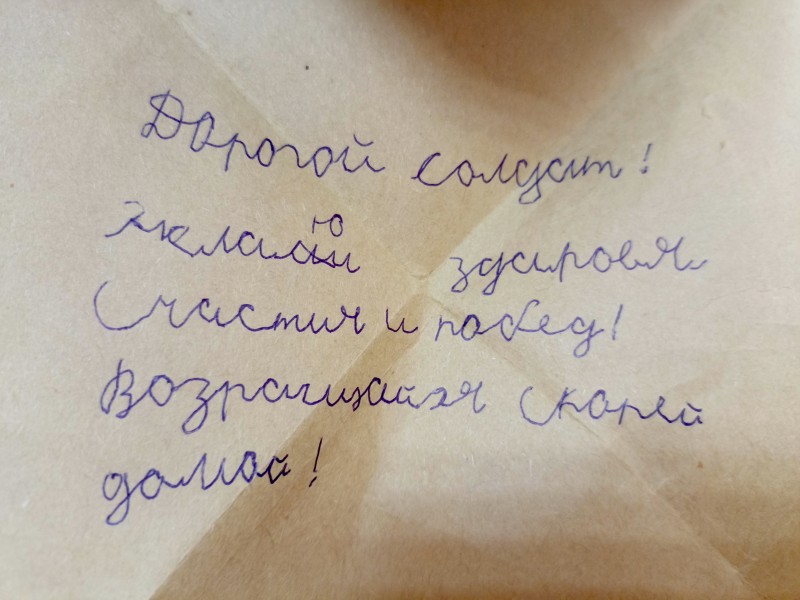 Дорогой солдат!
Желаю здаровя
Счастия и побед!
Возращайхя скорей
домой!